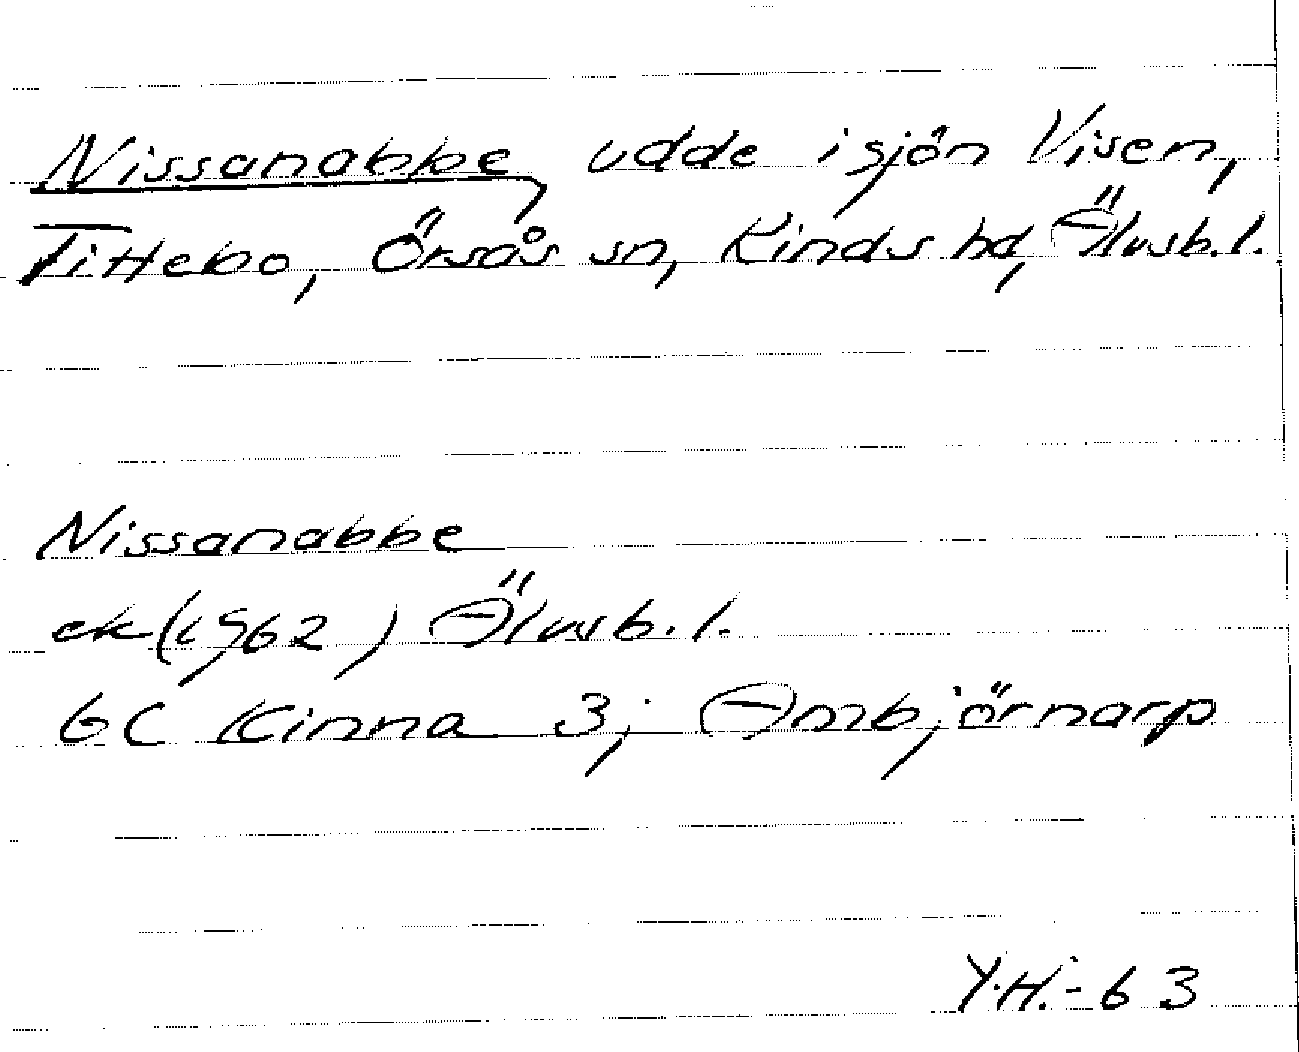 Nissanabbe, udde i sjön Visen,
Tittebo, Örsås sn, Kinds hd, Älvsb. l.
Nissanabbe
ek (1962) Älvsb. l.
6C Kinna 3j Ambjörnarp
Y.H.-63